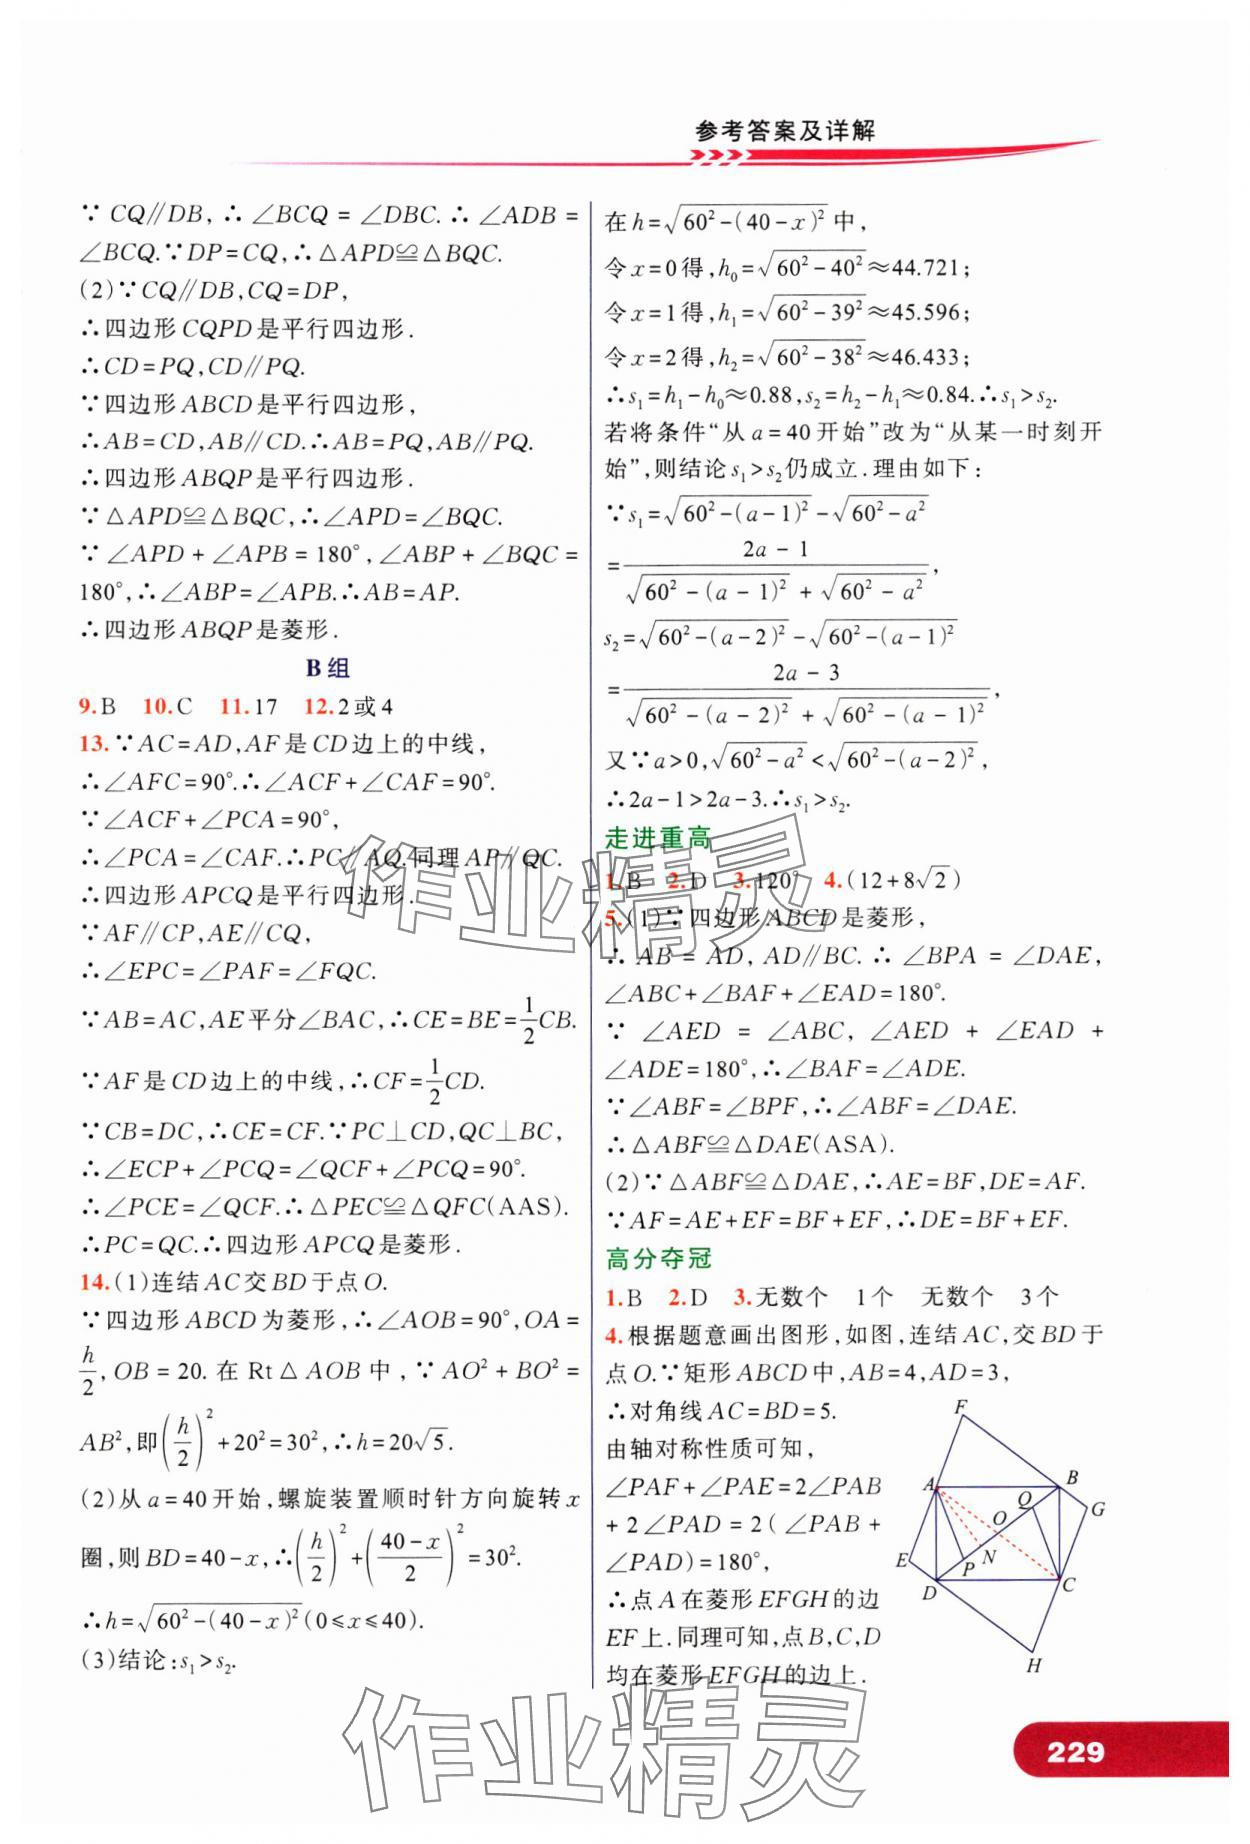 参考答案及详解
∵ CQ∥DB, ∴ ∠BCQ = ∠DBC. ∴ ∠ADB =
∠BCQ.∵DP=CQ,∴△APD≌△BQC.
(2)∵CQ∥DB,CQ=DP,
∴四边形CQPD是平行四边形.
∴CD=PQ,CD∥PQ.
∵四边形ABCD是平行四边形,
∴AB=CD,AB∥CD.∴AB=PQ,AB∥PQ.
∴四边形ABQP是平行四边形.
∵△APD≌△BQC,∴∠APD=∠BQC.
∵ ∠APD + ∠APB = 180°, ∠ABP + ∠BQC =
180°,∴∠ABP=∠APB.∴AB=AP.
∴四边形ABQP是菱形.
B组
9.B 10.C 11.17 12.2或4
13.∵AC=AD,AF是CD边上的中线,
∴∠AFC=90°.∴∠ACF+∠CAF=90°.
∵∠ACF+∠PCA=90°,
∴∠PCA=∠CAF.∴PC∥AQ.同理AP∥QC.
∴四边形APCQ是平行四边形.
∵AF∥CP,AE∥CQ,
∴∠EPC=∠PAF=∠FQC.
∵AB=AC,AE平分∠BAC,∴CE=BE=1/2CB.
∵AF是CD边上的中线,∴CF=1/2CD.
∵CB=DC,∴CE=CF.∵PC⊥CD,QC⊥BC,
∴∠ECP+∠PCQ=∠QCF+∠PCQ=90°.
∴∠PCE=∠QCF.∴△PEC≌△QFC(AAS).
∴PC=QC.∴四边形APCQ是菱形.
14.(1)连结AC交BD于点O.
∵四边形ABCD为菱形,∴∠AOB=90°,OA=
h/2, OB = 20. 在 Rt△AOB 中, ∵ AO² + BO² =
AB²,即(h/2)²+20²=30²,∴h=20√5.
(2)从a=40开始,螺旋装置顺时针方向旋转x
圈,则BD=40-x,∴(h/2)²+((40-x)/2)²=30².
∴h=√(60²-(40-x)²)(0≤x≤40).
(3)结论:s₁>s₂.
在h=√(60²-(40-x)²)中,
令x=0得,h₀=√(60²-40²)≈44.721;
令x=1得,h₁=√(60²-39²)≈45.596;
令x=2得,h₂=√(60²-38²)≈46.433;
∴s₁=h₁-h₀≈0.88,s₂=h₂-h₁≈0.84.∴s₁>s₂.
若将条件“从a=40开始”改为“从某一时刻开
始”,则结论s₁>s₂仍成立.理由如下:
∵s₁=√(60²-(a-1)²)-√(60²-a²)
=(2a-1)/(√(60²-(a-1)²)+√(60²-a²)),
s₂=√(60²-(a-2)²)-√(60²-(a-1)²)
=(2a-3)/(√(60²-(a-2)²)+√(60²-(a-1)²)),
又∵a>0,√(60²-a²)<√(60²-(a-2)²),
∴2a-1>2a-3.∴s₁>s₂.
走进重高
1.B 2.D 3.120° 4.(12+8√2)
5.(1)∵四边形ABCD是菱形,
∴ AB = AD, AD∥BC. ∴ ∠BPA = ∠DAE,
∠ABC+∠BAF+∠EAD=180°.
∵ ∠AED = ∠ABC, ∠AED + ∠EAD +
∠ADE=180°,∴∠BAF=∠ADE.
∵∠ABF=∠BPF,∴∠ABF=∠DAE.
∴△ABF≌△DAE(ASA).
(2)∵△ABF≌△DAE,∴AE=BF,DE=AF.
∵AF=AE+EF=BF+EF,∴DE=BF+EF.
高分夺冠
1.B 2.D 3.无数个 1个 无数个 3个
4.根据题意画出图形,如图,连结AC,交BD于
点O.∵矩形ABCD中,AB=4,AD=3,
∴对角线AC=BD=5.
由轴对称性质可知,
∠PAF+∠PAE=2∠PAB
+2∠PAD = 2( ∠PAB +
∠PAD)=180°,
∴点A在菱形EFGH的边
EF上.同理可知,点B,C,D
均在菱形EFGH的边上.
F
A
B
Q
G
O
N
E
P
D
C
H
作业精灵
作业精灵
229